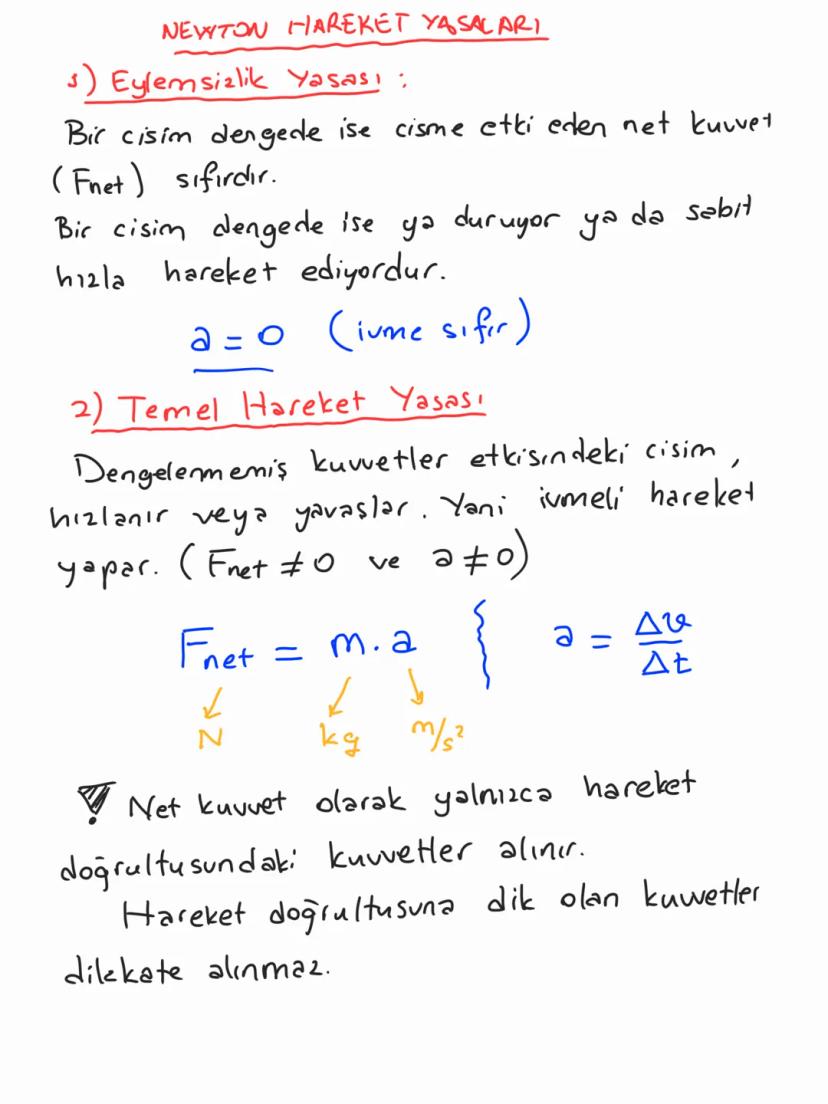 NEWTON HAREKET YASALARI
1) Eylemsizlik Yasası :
Bir cisim dengede ise cisme etki eden net kuvvet
(Fnet) sıfırdır.
Bir cisim dengede ise ya duruyor ya da sabit
hızla hareket ediyordur.
a = 0 (ivme sıfır)
2) Temel Hareket Yasası
Dengelenmemiş kuvvetler etkisindeki cisim ,
hızlanır veya yavaşlar. Yani ivmeli hareket
yapar. (Fnet ≠ 0 ve a ≠ 0)
Fnet = m . a a = Δv/Δt
N kg m/s²
! Net kuvvet olarak yalnızca hareket
doğrultusundaki kuvvetler alınır.
Hareket doğrultusuna dik olan kuvvetler
dikkate alınmaz.